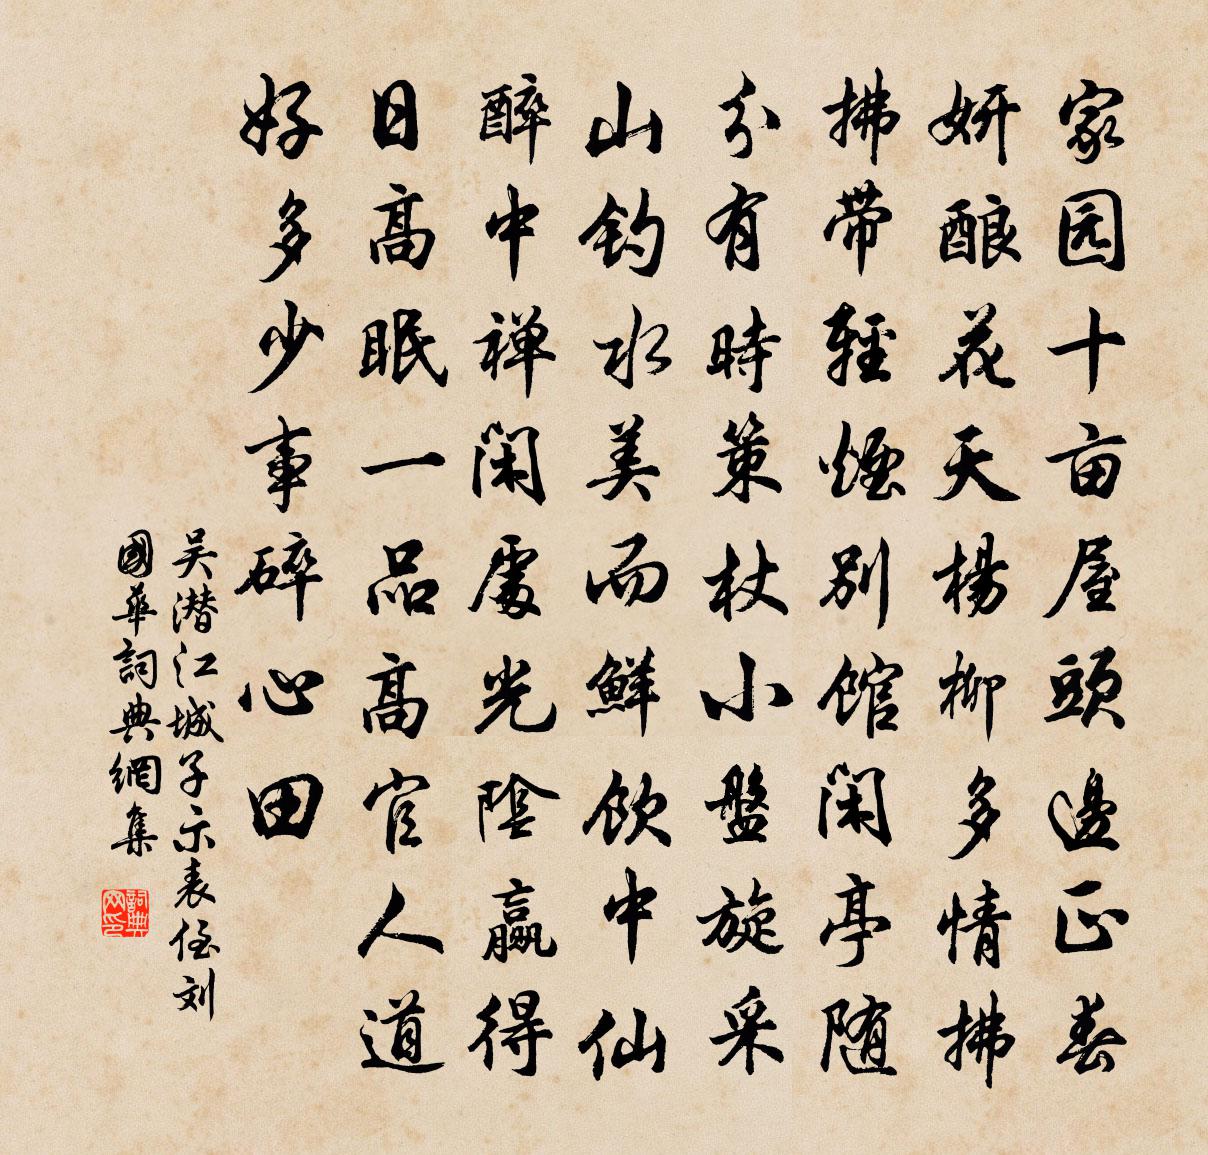 家园十亩屋頭邊正春
妍酿花天楊柳多情拂
拂带輕煙别馆闲亭随
分有時策杖小盤旋采
山钓水美而鮮飲中仙
醉中禅闲處光陰赢得
日高眠一品高官人道
好多少事碎心田
吴潜江城子示表侄刘
國華詞典網集
詞典网印